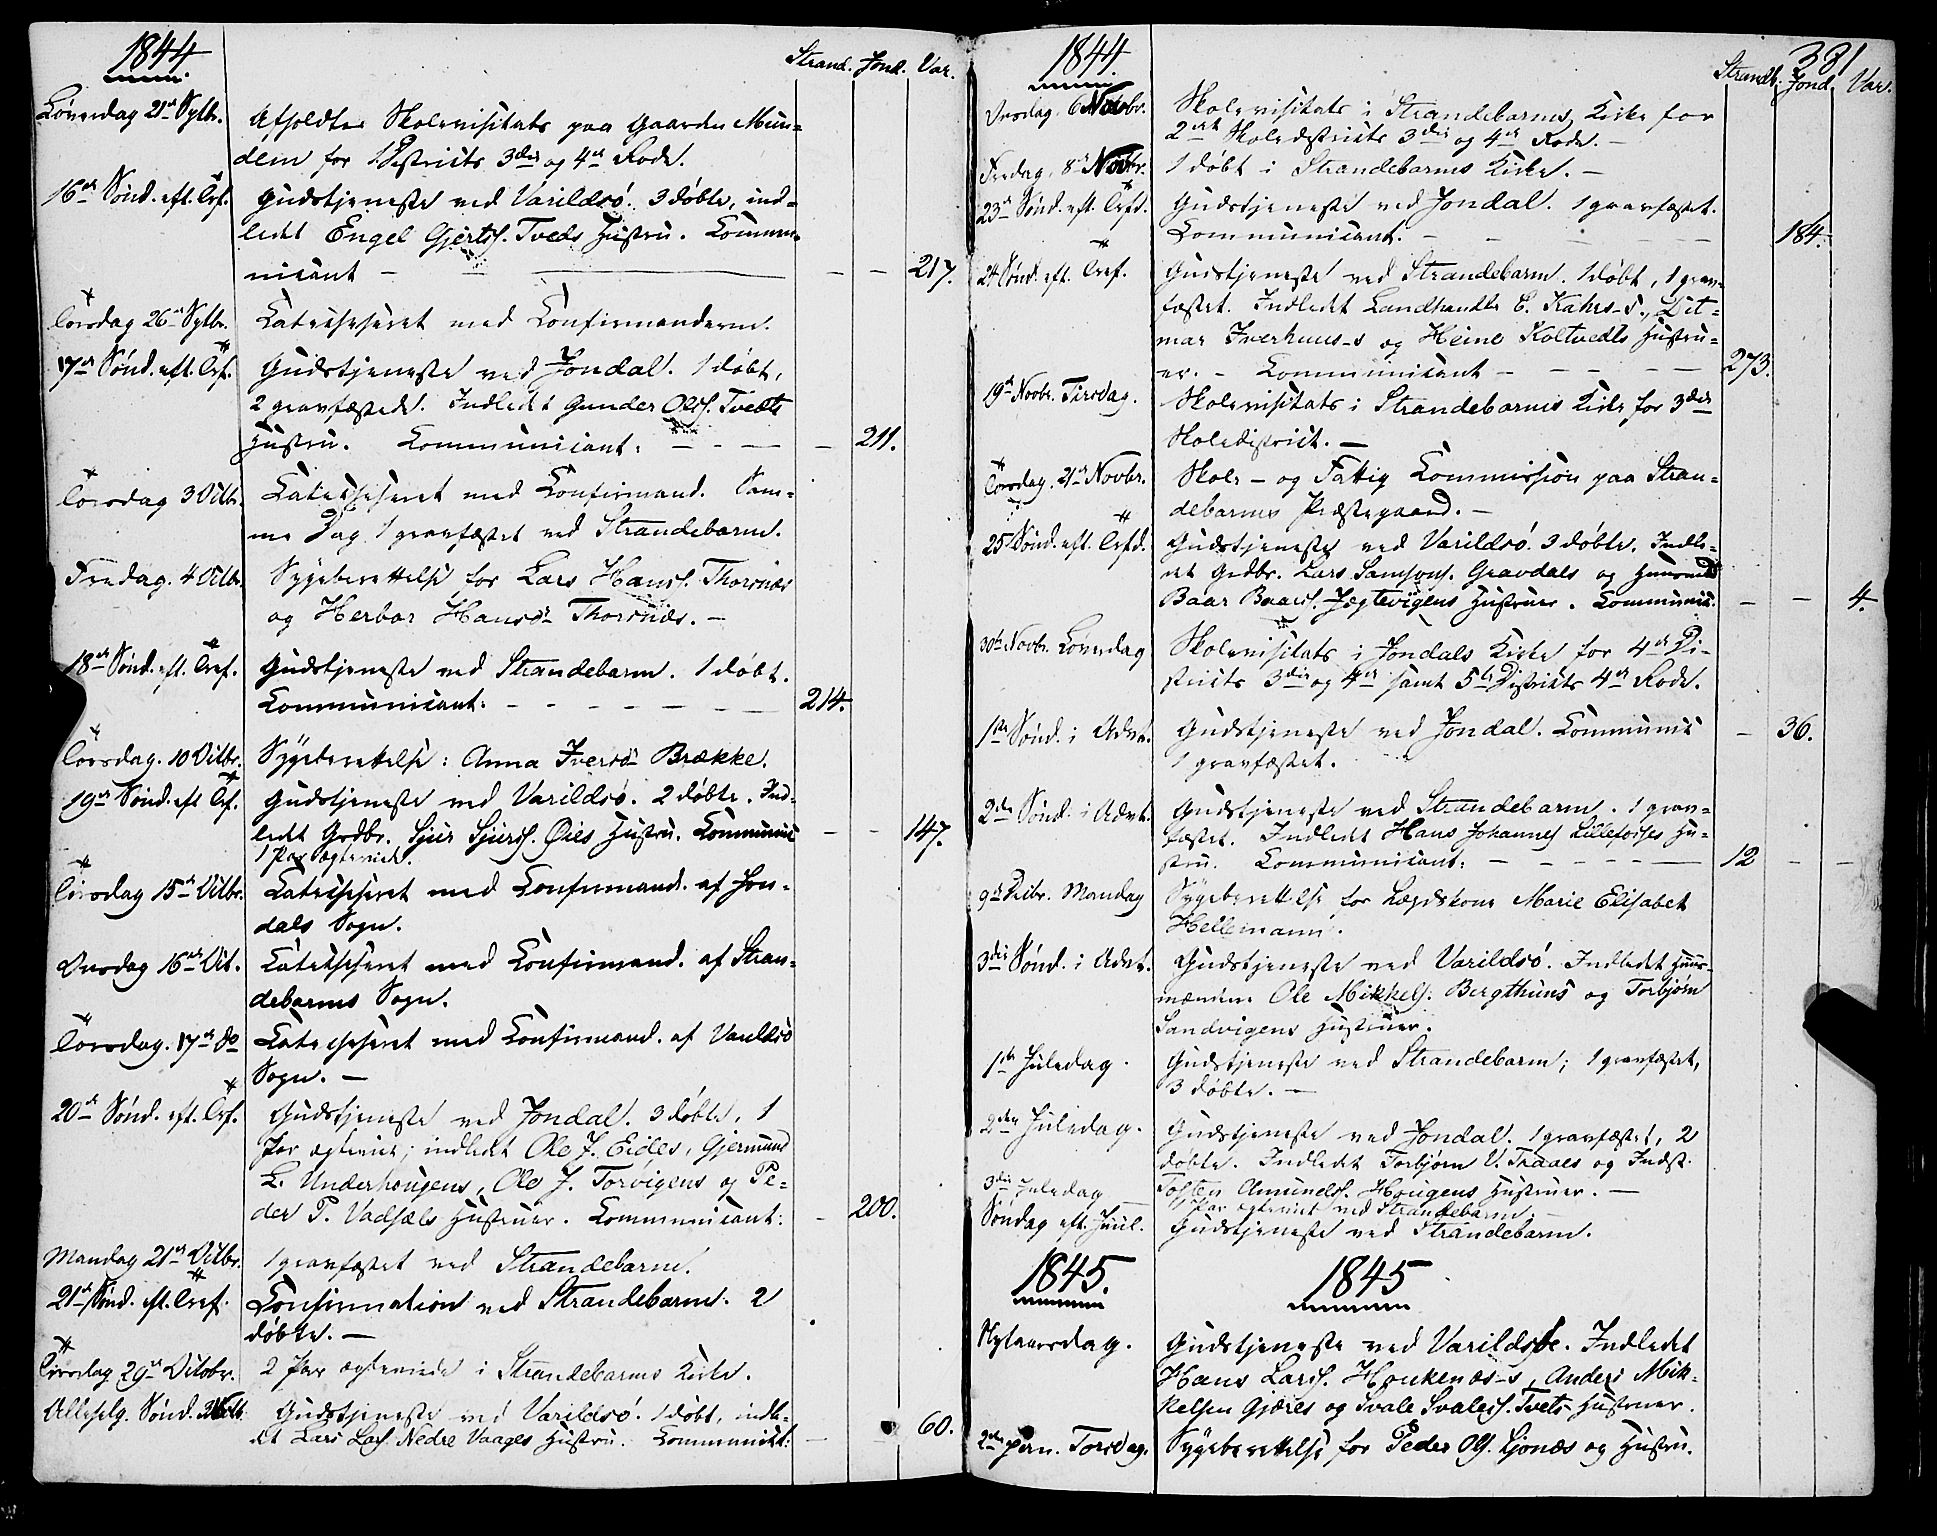 1844
Strand. Jond. Var.
Løverdag 21de Sptbr. Afholdtes Skolevisitats paa Gaarden Mun-
dem for 1 Districts 3die og 4de Rode.
16de Sønd. eft. Tref. Gudstjeneste ved Varildsö. 3 døbte, ind-
ledet Engel Gjerts. Tveds Hustru. Commu-
nicant - - - 217.
Torsdag 26de Sptbr. Catechiseret med Confirmanderne.
17de Sønd. eft. Tref. Gudstjeneste ved Jondal. 1 døbt,
2 gravfæstede. Indledet Gunder Ols. Tvedts
Hustru. Communicant: - - - - 211.
Torsdag 3 Octbr. Catechiseret med Confirmand. Sam-
me Dag 1 gravfæstet ved Strandebarm.
Fredag. 4 Octbr. Sygeberettelse for Lars Hans. Thorsnæs
og Herbor Hansdr Thorsnæs. -
18de Sønd. eft. Tref. Gudstjeneste ved Strandebarm. 1 døbt.
Communicant. - - - - - - 214.
Torsdag. 10 Octbr. Sygeberettelse: Anna Iversdr Brække.
19de Sønd. eft Tref. Gudstjeneste ved Varildsö. 2 døbte. Ind-
ledet Grdbr. Sjur Sjurs. Øies Hustru. Communic - - 147.
1 Par ægteviet.
Tirsdag 15de Octbr. Catechiseret med Confirmand. af Jon-
dals Sogn.
Onsdag 16de Oct. Catechiseret med Confirmand. af Stran-
debarms Sogn.
Torsdag. 17de do Catechiseret med Confirmand. af Varildsö
Sogn. -
20de Sønd. eft. Tref. Gudstjeneste ved Jondal. 3 døbte, 1
Par ægteviet; indledet Ole J. Eides, Gjermund
L. Underhougens, Ole J. Torvigens og Pe-
der P. Vadsæls Hustruer. Communicant: - 200.
Mandag 21de Octbr. 1 gravfæstet ved Strandebarm.
21de Sønd. eft. Tref. Confirmation ved Strandebarm. 2
døbte. -
Tirsdag 29de Octobr. 2 Par ægteviede i Strandebarms Kirke.
Allehelg. Sønd. Gudstjeneste ved Varildsö. 1 døbt, indle-
det Lars Lars. Nedre Vaages Hustru. Communict: - - 60.
1844.
331
Strandb. Jond. Var.
Onsdag, 6 Novbr. Skolevisitats i Strandebarms Kirke for
2det Skoledistricts 3die og 4de Rode. -
Fredag, 8de Novbr. 1 døbt i Strandebarms Kirke. -
23de Sønd. eft. Trefd. Gudstjeneste ved Jondal. 1 gravfæstet.
Communicant. - - - - - 184.
24 Sønd. eft. Tref. Gudstjeneste ved Strandebarm. 1 døbt, 1 grav-
fæstet. Indledet Landhandler C. Kahrs-s., Dit-
mar Iverhuus-s og Heine Koltvedts Hustru-
er. - Communicant - - - - - 273.
19de Novbr. Tirsdag. Skolevisitats i Strandebarms Kirke for 3die
Skoledistrict. -
Torsdag. 21de Novbr. Skole- og Fattig Commission paa Stran-
debarms Præstegaard. -
25 Sønd. eft. Trefd. Gudstjeneste ved Varildsö. 3 døbte. Indle-
det Grdbr. Lars Samsons. Gravdals og Huusmd
Baar Baars. Jægtevigens Hustruer. Communic: - - 4.
30de Novbr. Løverdag Skolevisitats i Jondals Kirke for 4de Di-
stricts 3die og 4de samt 5te Districts 4de Rode.
1ste Sønd. i Advt. Gudstjeneste ved Jondal. Communic - 36.
1 gravfæstet.
2den Sønd. i Advt. Gudstjeneste ved Strandebarm. 1 grav-
fæstet. Indledet Hans Johannes Hu-
stru. Communicant: - - - - - - 12 - -
9de Decbr. Mandag Sygeberettelse for Lægdskone Marie Elisabet
Hellemann.
3die Sønd. i Advt. Gudstjeneste ved Varildsö. Indledet Huus-
mændene Ole Mikkels. Bergthuns og Torbjørn
Sandvigens Hustruer.
1ste Juledag. Gudstjeneste ved Strandebarm; 1 gravfæstet,
3 døbte. -
2den Juledag. Gudstjeneste ved Jondal. 1 gravfæstet, 2
døbte. Indledet Torbjørn V. Traaes og Indst.
Tosten Amunds. Hougens Hustruer. -
3die Juledag 1 Par ægteviet ved Strandebarm. -
Søndag eft. Juul. Gudstjeneste ved Strandebarm.
1845. 1845
Nytaarsdag. Gudstjeneste ved Varildsöe. Indledet
Hans Lars. Houkenæs-s, Anders Mik-
kelsen Gjæres og Svale Svales. Tvets Hustruer.
2den Jan. Torsdag. Sygeberettelse for Peder Ols. Ljonæs og Hustru.